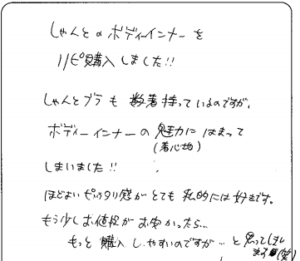 しゃんとのボディーインナーを
リピ購入しました!!
しゃんとブラも数着持っているのですが、
ボディーインナーの魅力にはまって
(着心地)
しまいました!!
ほどよいピッタリ感がとても私的には好きです。
もう少しお値段がお安かったら…
もっと購入しやすいのですが…と思ってしまい
ます(笑)